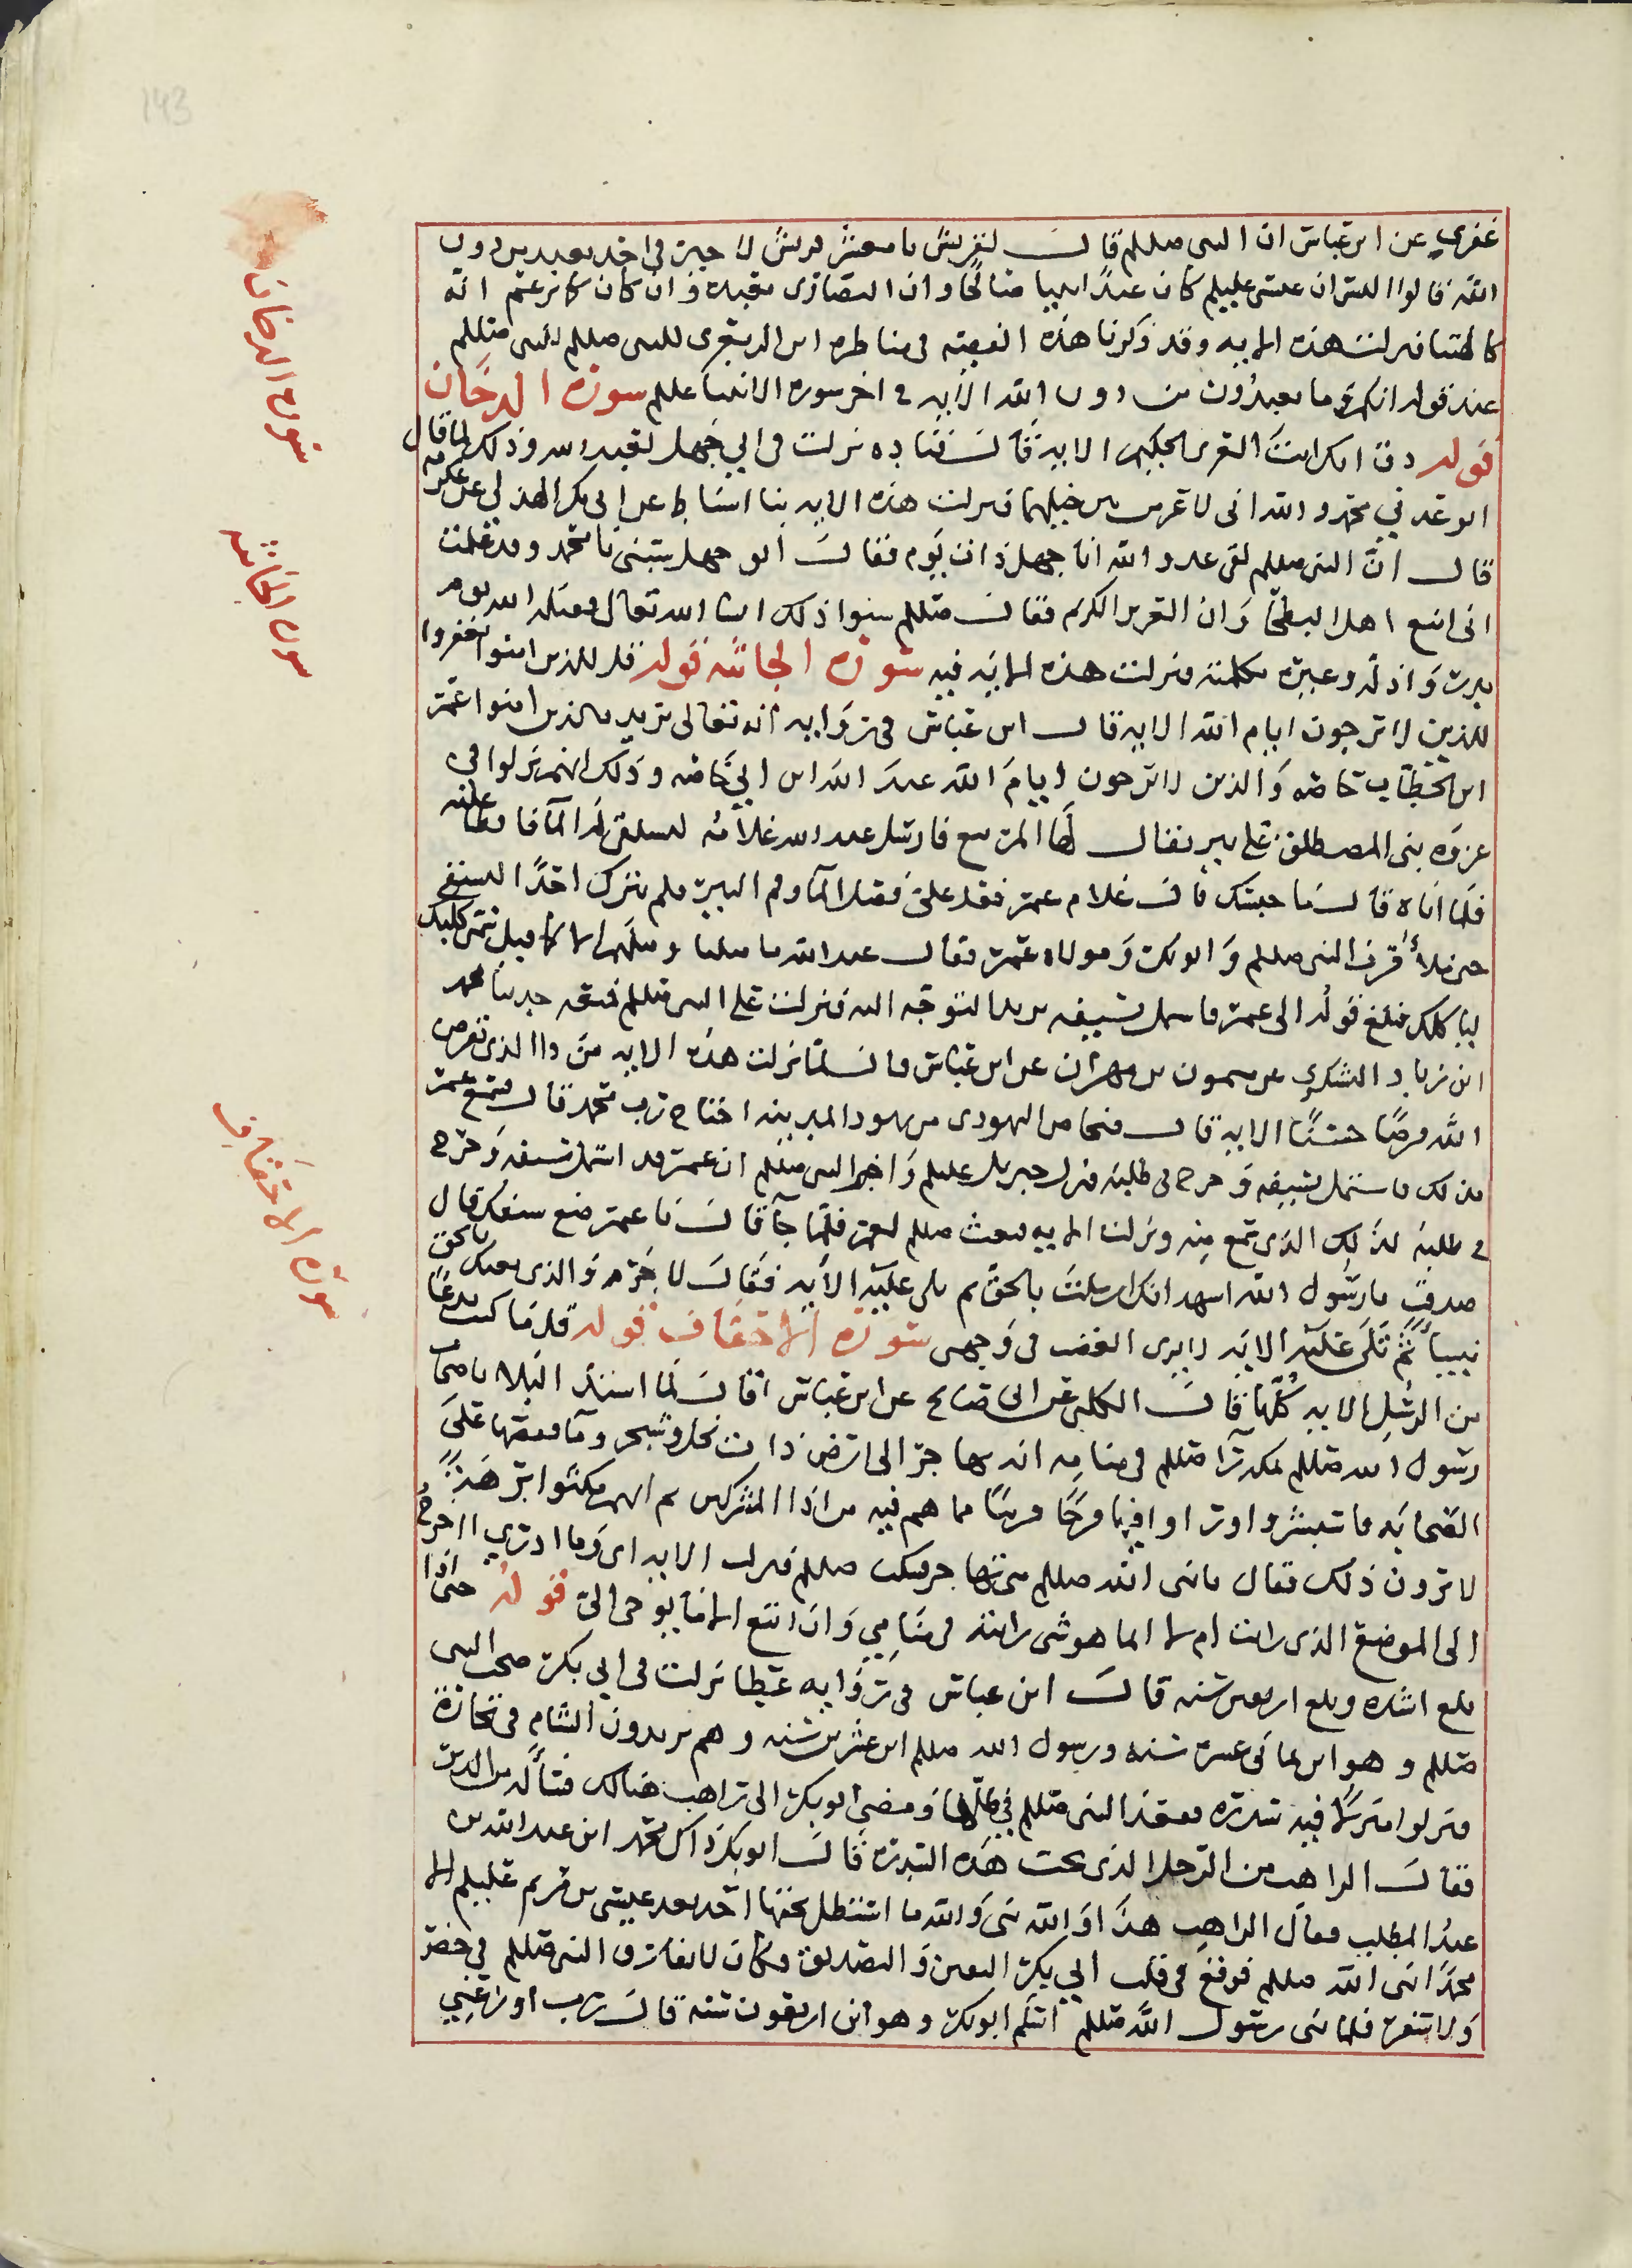 غفري عن ابن عباس ان النبي صللم قال لقريش يا معشر قريش لا خير في احد يعبد من دون
الله قالوا الست تزعم ان عيسى عليلم كان عبدا نبيا صالحا وان النصارى تعبده فان كان كما تزعم انه
كالهتنا فنزلت هذه الايه وقد ذكرنا هذه القصه في مناظره ابن الزبعرى للنبي صللم
عند قوله انكم وما تعبدون من دون الله الايه في اخر سوره الانبيا عللم سورة الدخان
قوله ذق انك انت العزيز الحكيم الايه قال قتاده نزلت في ابي جهل لعنه الله وذلك لما قال
ايوعدني محمد والله اني لاعز من بين جبليها فنزلت هذه الايه بنا اسباط عن ابي بكر الهذلي عن عكرمه
قال ان النبي صللم لقي عدو الله ابا جهل ذات يوم فقال ابو جهل يا محمد وقد علمت
اني امنع اهل البطحا وان العزيز الكريم فقال صللم ذلك ان شا الله تعالى فقتله الله يوم
بدر واذله وعيره بكلمته ونزلت هذه الايه فيه سورة الجاثيه قوله قل للذين امنوا يغفروا
للذين لا يرجون ايام الله الايه قال ابن عباس في روايه انه تعالى يريد بالذين امنوا عمر
ابن الخطاب خاصه والذين لا يرجون ايام الله عبد الله ابن ابي خاصه وذلك انهم نزلوا في
غزوه بني المصطلق على بير يقال لها المريسيع فارسل عبد الله غلامه ليستقي له الما فابطا عليه
فلما اتاه قال ما حبسك قال غلام عمر قعد على الما وفم البير فلم يترك احدا يستقي
حتى ملا قرب النبي صللم وابو بكر ومولاه عمر فقال عبد الله ما مثلنا ومثلهم الا كما قيل سمن كلبك
ياكلك فبلغ قوله الى عمر فاشتمل بسيفه يريد التوجه اليه فنزلت على النبي صللم حديث محمد
ابن زياد اليشكري عن ميمون بن مهران عن ابن عباس قال لما نزلت هذه الايه من ذا الذي يقرض
الله قرضا حسنا الايه قال فنحاص اليهودي من يهود المدينه احتاج رب محمد قال فسمع عمر
بذلك فاشتمل بسيفه وخرج في طلبه فنزل جبريل عليلم واخبر النبي صللم ان عمر قد اشتمل بسيفه وخرج
في طلبه لذلك الذي سمع منه ونزلت الايه فبعث صللم لعمر فلما جا قال يا عمر ضع سيفك قال
صدقت يا رسول الله اشهد انك ارسلت بالحق ثم تلى عليه الايه فقال لا جرم والذي بعثك بالحق
نبيا ثم تلى عليه الايه لا يرى الغضب في وجهي سورة الاحقاف قوله قل ما كنت بدعا
من الرسل الايه كلها قال الكلبي عن ابي صالح عن ابن عباس قال لما اشتد البلا باصحاب
رسول الله صللم بمكه راى صللم في منامه انه يهاجر الى ارض ذات نخل وشجر وما فقصها على
الصحابه فاستبشروا وراوا فيها فرجا قريبا مما هم فيه من اذا المشركين ثم انهم مكثوا برهة
لا يرون ذلك فقال يا نبي الله صللم متى نهاجر فسكت صللم فنزلت الايه اي وما ادري ااخرج
الى الموضع الذي رايت ام لا انما هو شي رايته في منامي وان اتبع الا ما يوحى الي قوله حتى اذا
بلغ اشده وبلغ اربعين سنه قال ابن عباس في روايه عطا نزلت في ابي بكر صحب النبي
صللم وهو ابن ثماني عشره سنه ورسول الله صللم ابن عشرين سنه وهم يريدون الشام في تجارة
فنزلوا منزلا فيه سدره فقعد النبي صللم في ظلها ومضى ابو بكر الى راهب هنالك فسأله عن الدين
فقال الراهب من الرجل الذي تحت هذه السدره قال ابو بكر ذاك محمد ابن عبد الله بن
عبد المطلب فقال الراهب هذا والله نبي والله ما استظل تحتها احد بعد عيسى بن مريم عليلم الا
محمدا نبي الله صللم فوقع في قلب ابي بكر اليقين والتصديق وكان لا يفارق النبي صللم في حضر
ولا سفر فلما نبي رسول الله صللم اسلم ابو بكر وهو ابن اربعون سنه قال رب اوزعني
سورة الدخان
سورة الجاثيه
سورة الاحقاف
143